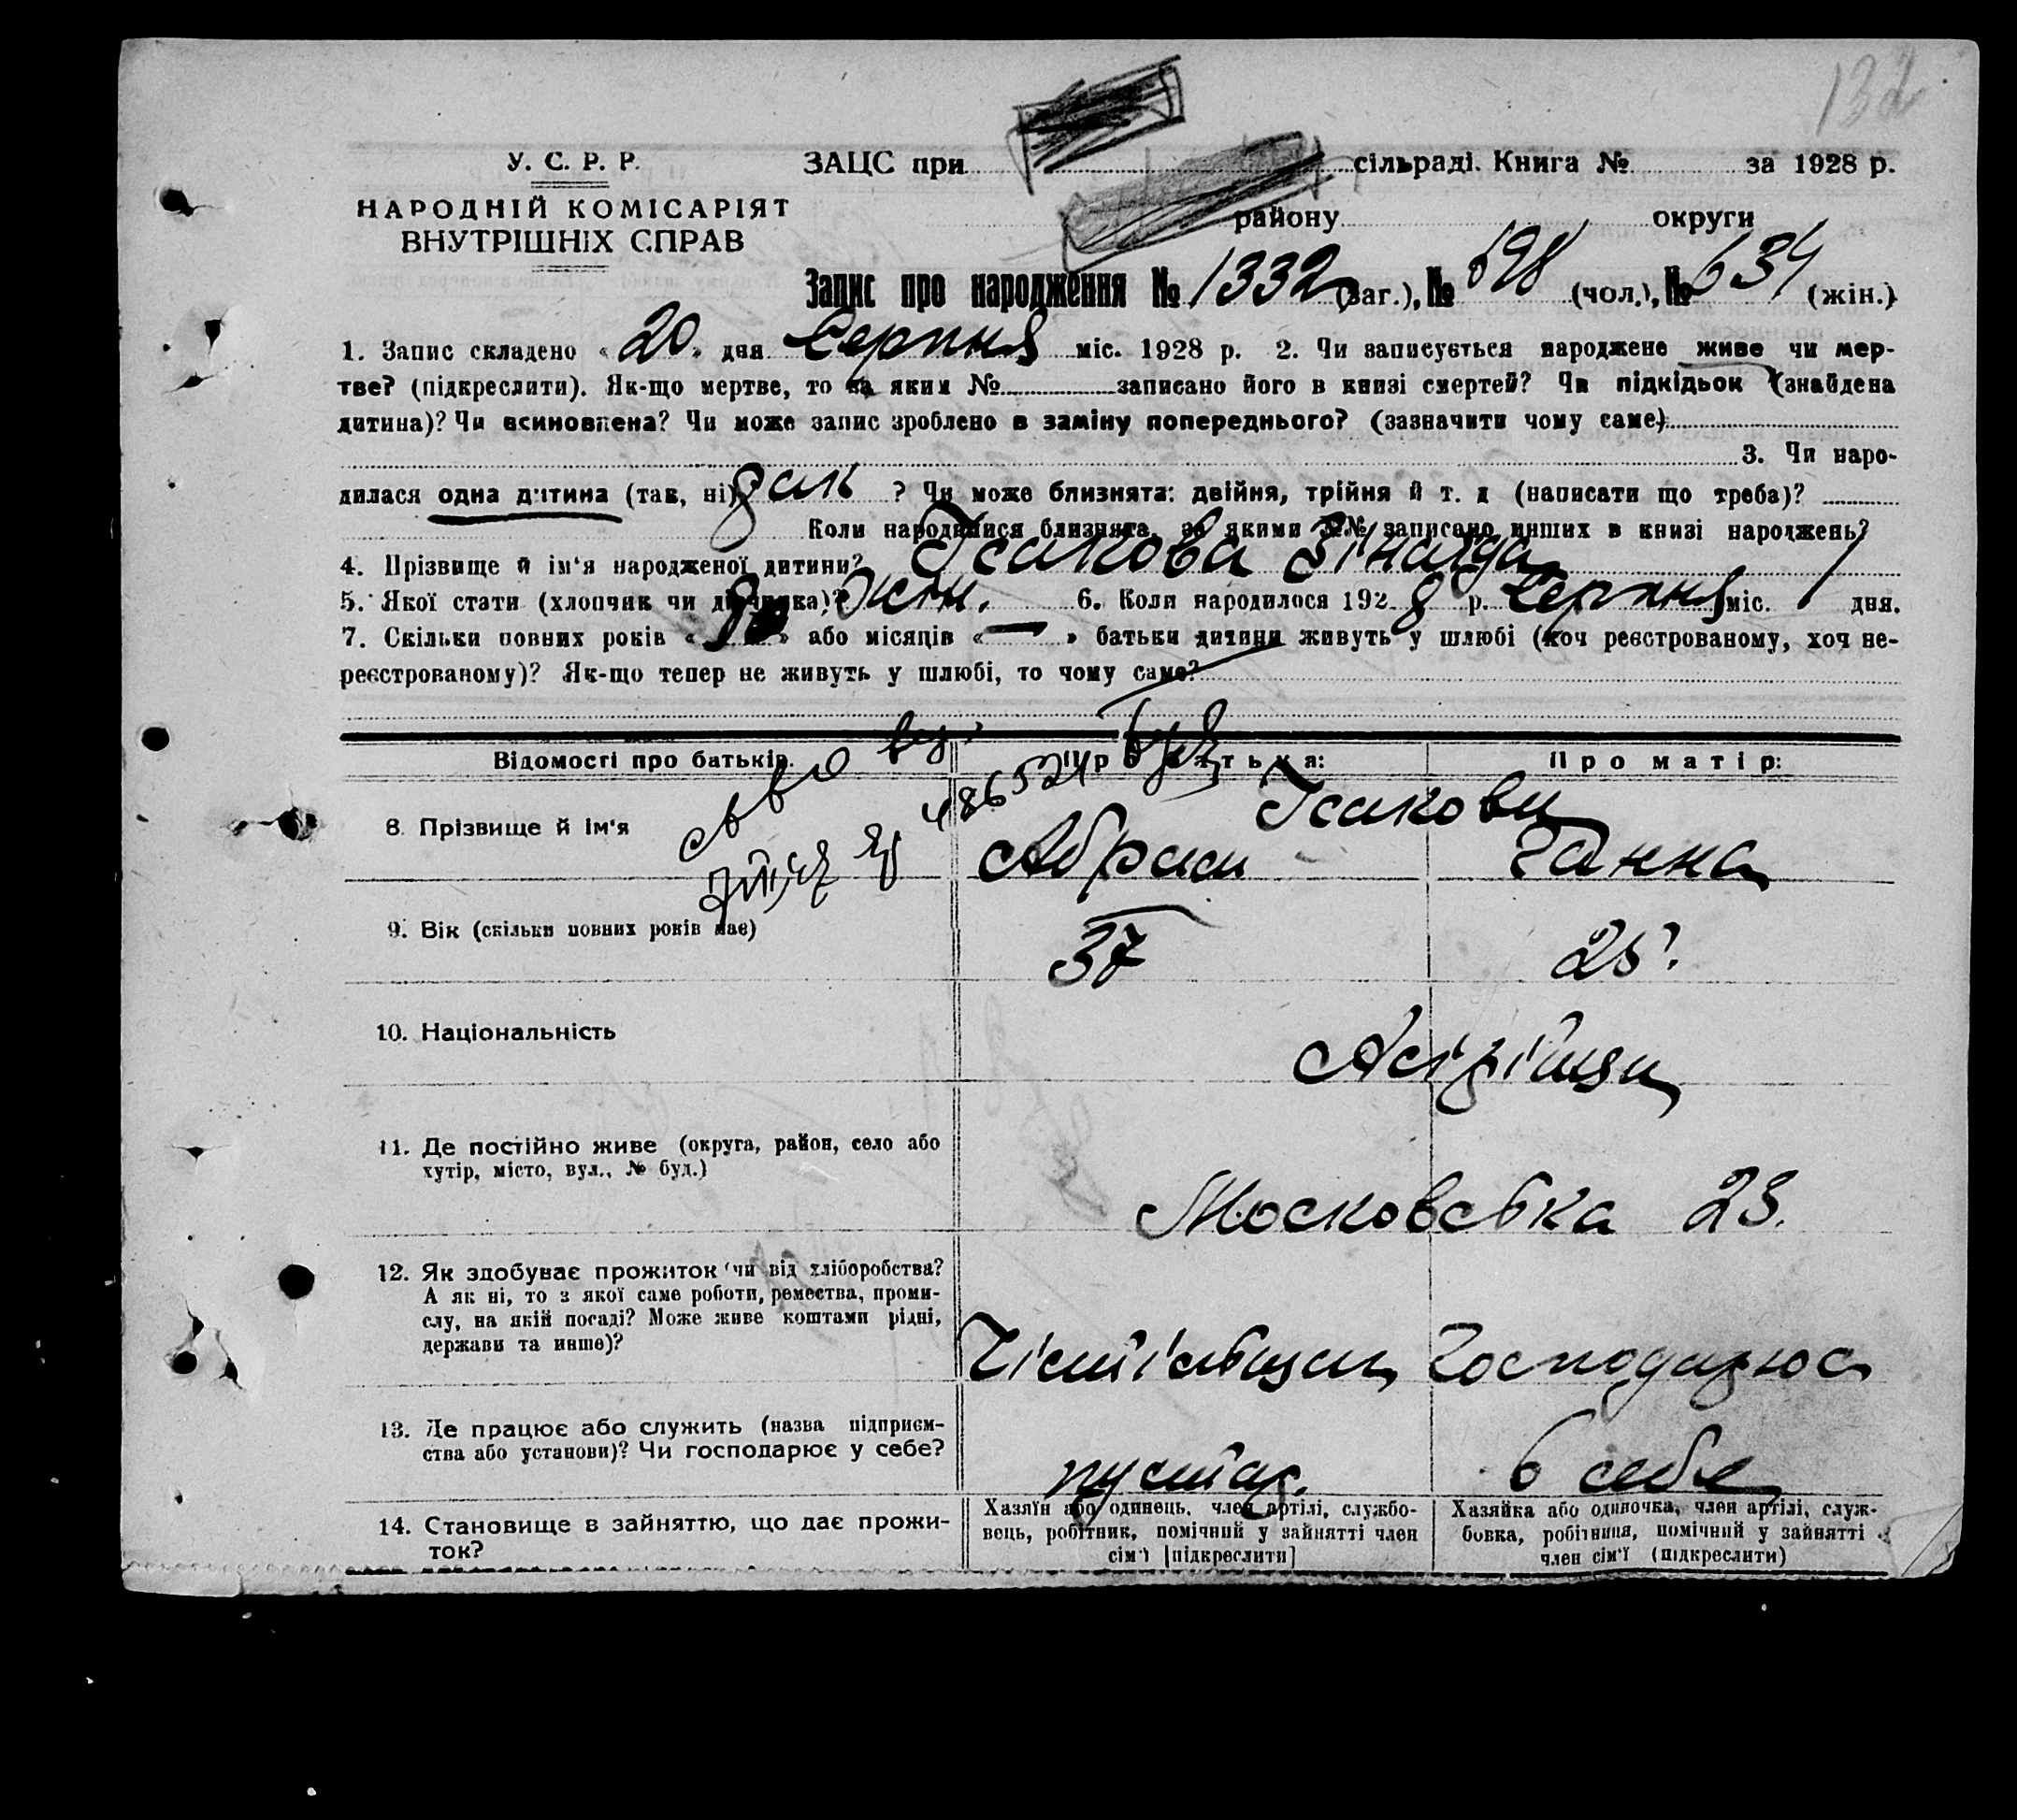 132
У. С. Р. Р.
НАРОДНІЙ КОМІСАРІЯТ
ВНУТРІШНІХ СПРАВ
ЗАЦС при сільраді. Книга № за 1928 р.
району округи
Запис про народження № 1332 (заг.), № 698 (чол.), № 634 (жін.)
1. Запис складено « 20 » дня Серпня міс. 1928 р. 2. Чи записується народжене живе чи мер-
тве? (підкреслити). Як-що мертве, то за яким № записано його в книзі смертей? Чи підкідьок (знайдена
дитина)? Чи всиновлена? Чи може запис зроблено в заміну попереднього? (зазначити чому саме)
3. Чи наро-
дилася одна дитина (так, ні) ? Чи може близнята: двійня, трійня й т. д (написати що треба)?
Коли народилися близнята, за якими №№ записано инших в книзі народжень?
4. Прізвище й ім'я народженої дитини? Ісакова Зінаіда
5. Якої стати (хлопчик чи дівчинка)? жін. 6. Коли народилося 1928 р. Серпня міс. 1 дня.
7. Скільки повних років « » або місяців « — » батьки дитини живуть у шлюбі (хоч реєстрованому, хоч не-
реєстрованому)? Як-що тепер не живуть у шлюбі, то чому саме?
Відомості про батьків. Про батька: Про матір:
486524
Ісакови
8. Прізвище й ім'я Абрам Ганна
9. Вік (скільки повних років має) 37 25
10. Національність Асірійци
11. Де постійно живе (округа, район, село або
хутір, місто, вул., № буд.)
Московська 23.
12. Як здобуває прожиток (чи від хліборобства?
А як ні, то з якої саме роботи, ремества, проми-
слу, на якій посаді? Може живе коштами рідні,
держави та инше)?
Господарює
13. Де працює або служить (назва підприєм-
ства або установи)? Чи господарює у себе?
в себе
14. Становище в зайняттю, що дає прожи-
ток?
Хазяїн або одинець, член артілі, службо-
вець, робітник, помічний у зайнятті член
сім'ї [підкреслити]
Хазяйка або одиночка, член артілі, служ-
бовка, робітниця, помічний у зайнятті
член сім'ї (підкреслити)